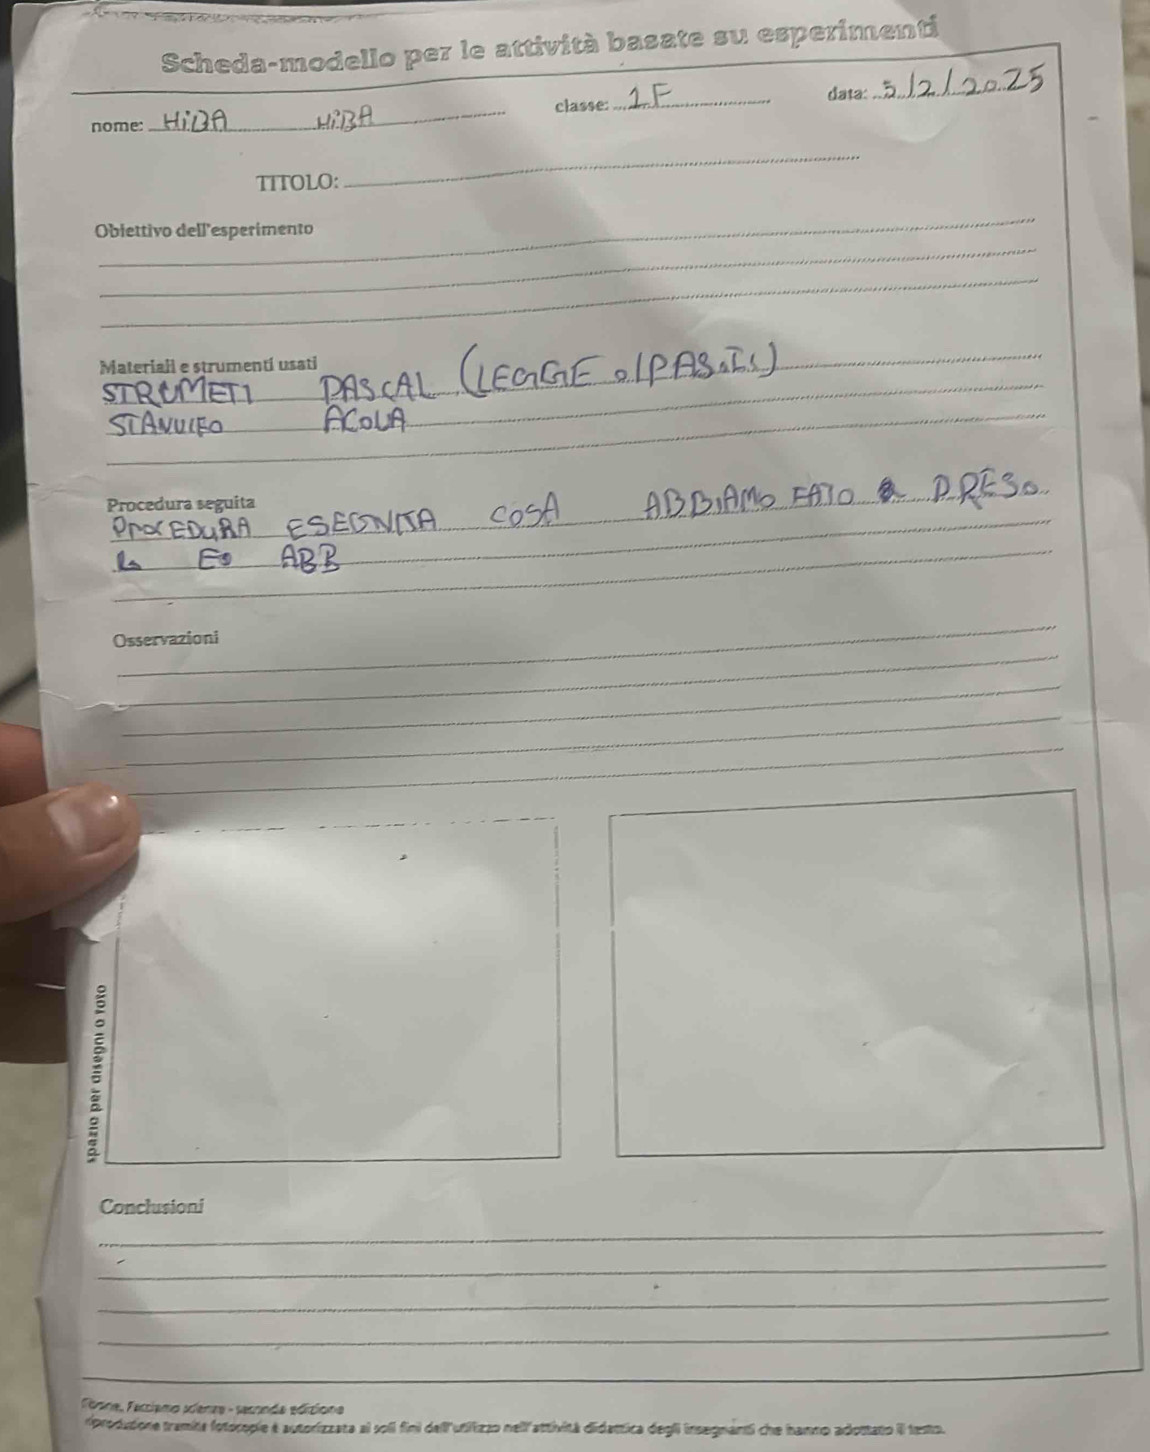 Scheda-modello per le attività basate su esperimenti
nome: HiBA HiBA classe: 1F data: 5/2/2025
TITOLO:
Obiettivo dell'esperimento
Materiali e strumenti usati
STRUMETI PASCAL (LEGGE
ACOUA
Procedura seguita
ProcEDURA COSA ABBIAMO FATO PRESO
ABB
Osservazioni
spazio per disegni o foto
Conclusioni
Fabbri, Facciamo scienze - seconda edizione
riproduzione tramite fotocopie è autorizzata ai soli fini dell'utilizzo nell'attività didattica degli insegnanti che hanno adottato il testo.